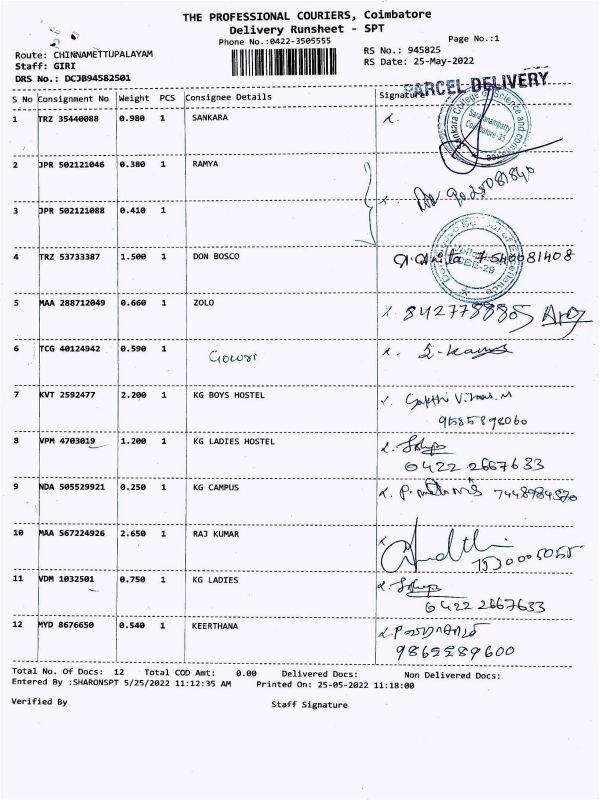 THE PROFESSIONAL COURIERS, Coimbatore
Delivery Runsheet - SPT
Phone No.:0422-3505555
Page No.:1
Route: CHINNAMETTUPALAYAM
RS No.: 945825
Staff: GIRI
RS Date: 25-May-2022
DRS No.: DCJB94582501
PARCEL DELIVERY
S No Consignment No Weight PCS Consignee Details Signature
1 TRZ 35440088 0.980 1 SANKARA
Sankara College of Science and
Saravanampatty
Coimbatore-35
2 JPR 502121046 0.380 1 RAMYA
3 JPR 502121088 0.410 1
4 TRZ 53733387 1.500 1 DON BOSCO 7540081408
Don Bosco School of Excellence
CBE-29
5 MAA 288712049 0.660 1 ZOLO
6 TCG 40124942 0.590 1 Gowri
7 KVT 2592477 2.200 1 KG BOYS HOSTEL
8 VPM 4703019 1.200 1 KG LADIES HOSTEL
0422 2667633
9 NDA 505529921 0.250 1 KG CAMPUS
10 MAA 567224926 2.650 1 RAJ KUMAR
11 VDM 1032501 0.750 1 KG LADIES
0422 2667633
12 MYD 8676650 0.540 1 KEERTHANA
9865289600
Total No. Of Docs: 12 Total COD Amt: 0.00 Delivered Docs: Non Delivered Docs:
Entered By :SHARONSPT 5/25/2022 11:12:35 AM Printed On: 25-05-2022 11:18:00
Verified By Staff Signature